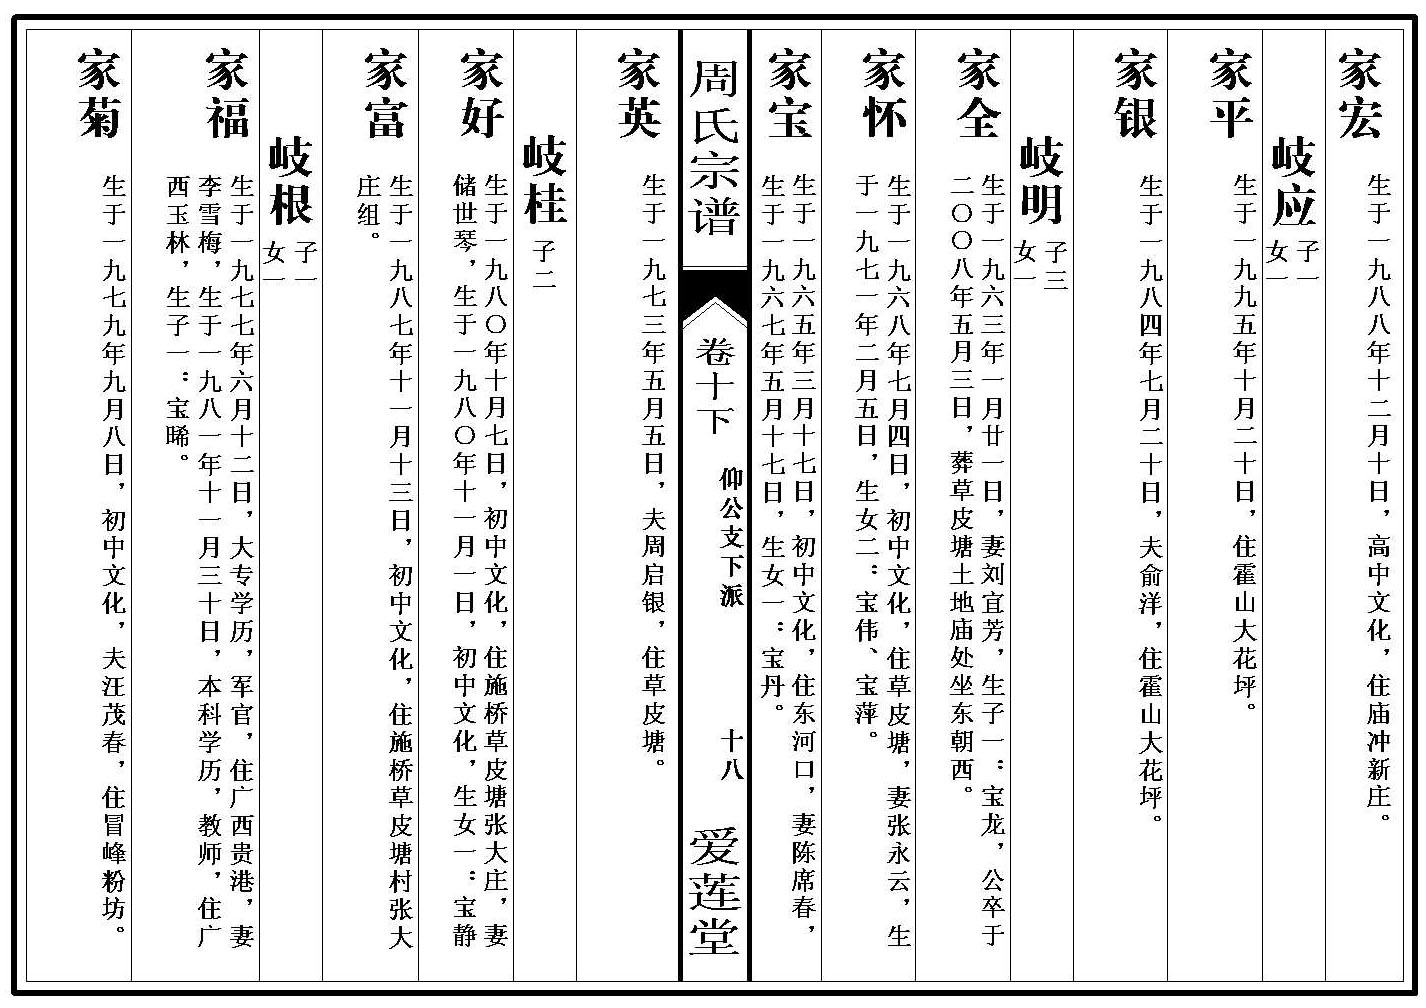 家宏
生于一九八八年十二月十日，高中文化，住庙冲新庄。
岐应
子一
女一
家平
生于一九九五年十月二十日，住霍山大花坪。
家银
生于一九八四年七月二十日，夫俞洋，住霍山大花坪。
岐明
子三
女一
家全
生于一九六三年一月廿一日，妻刘宜芳，生子一：宝龙，公卒于
二〇〇八年五月三日，葬草皮塘土地庙处坐东朝西。
家怀
生于一九六八年七月四日，初中文化，住草皮塘，妻张永云，生
于一九七一年二月五日，生女二：宝伟、宝萍。
家宝
生于一九六五年三月十七日，初中文化，住东河口，妻陈席春，
生于一九六七年五月十七日，生女一：宝丹。
周氏宗谱
卷十下
仰公支下派
十八
爱莲堂
家英
生于一九七三年五月五日，夫周启银，住草皮塘。
岐桂
子二
家好
生于一九八〇年十月七日，初中文化，住施桥草皮塘张大庄，妻
储世琴，生于一九八〇年十一月一日，初中文化，生女一：宝静
家富
生于一九八七年十一月十三日，初中文化，住施桥草皮塘村张大
庄组。
岐根
子一
女一
家福
生于一九七七年六月十二日，大专学历，军官，住广西贵港，妻
李雪梅，生于一九八一年十一月三十日，本科学历，教师，住广
西玉林，生子一：宝晞。
家菊
生于一九七九年九月八日，初中文化，夫汪茂春，住冒峰粉坊。